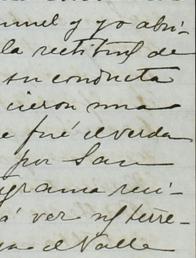 y yo abri-
la rectitud de
su conducta
cieron una
e fué el verda
por San
grama reci-
á ver
el Valle